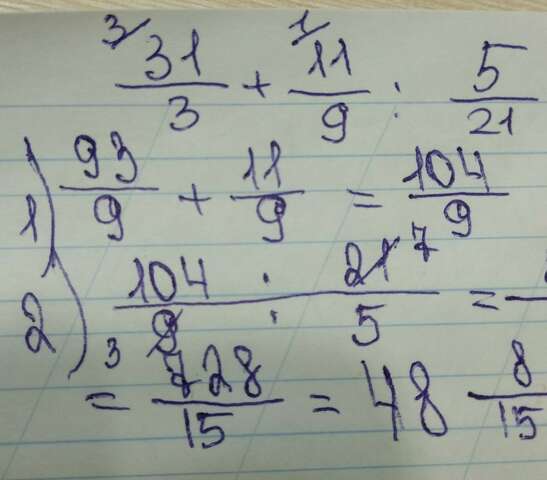 3/ 31/3 + 1/ 11/9 : 5/21
1) 93/9 + 11/9 = 104/9
2) 104/9 3 : 21 7/5 =
= 728/15 = 48 8/15